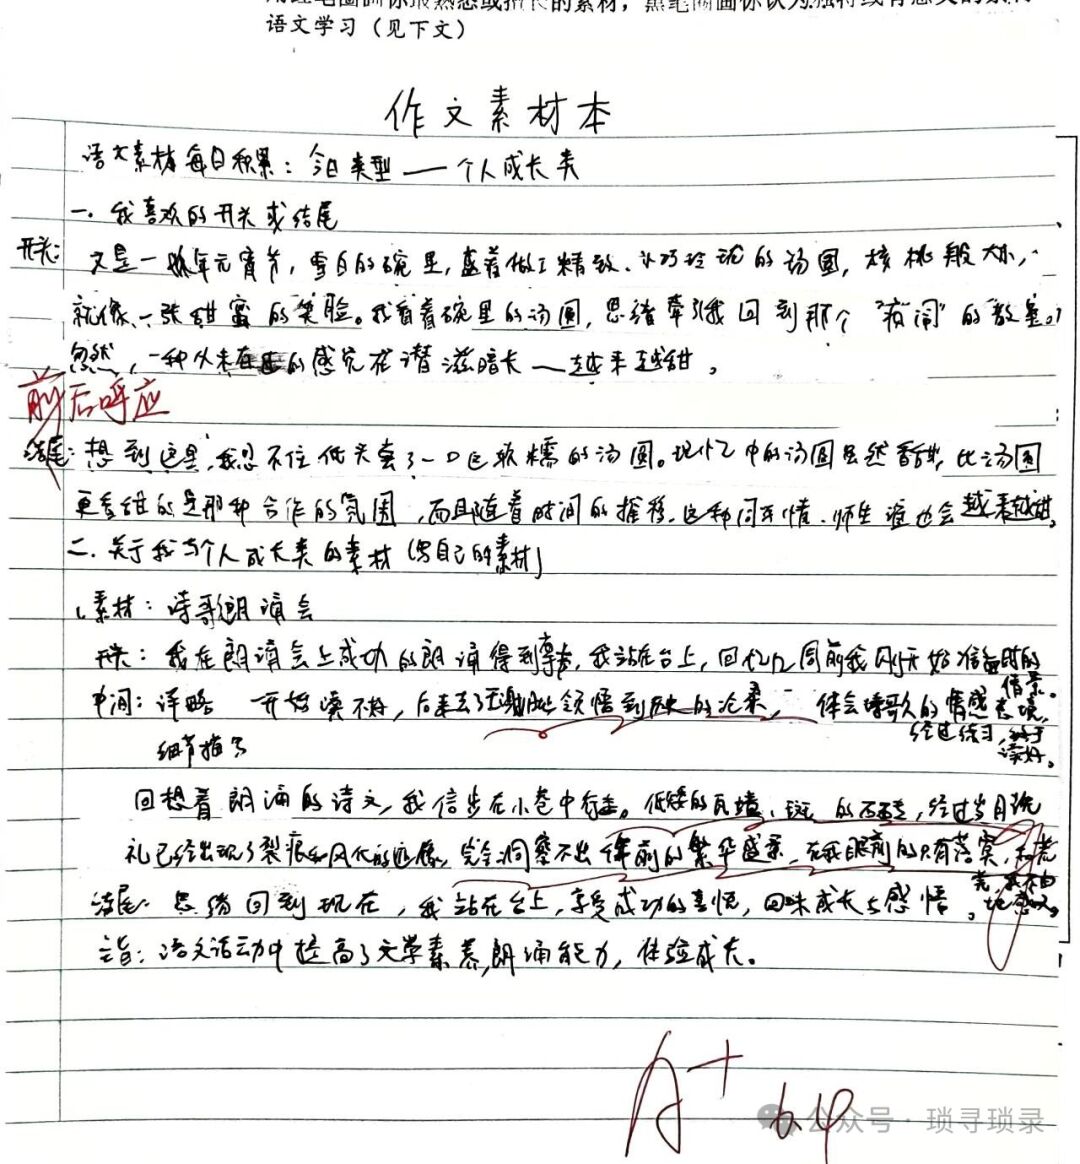 语文学习（见下文）
作文素材本
语文素材每日积累：今日类型——个人成长类
一、我喜欢的开头或结尾
开头：又是一年元宵节，雪白的碗里，盛着做工精致、小巧玲珑的汤圆，核桃般大小，
就像一张甜蜜的笑脸。我看着碗里的汤圆，思绪牵引我回到那个“夜闹”的教室。
忽然，一种从未有过的感觉在潜滋暗长——越来越甜。
前后呼应
结尾：想到这里，我忍不住低头尝了一口这软糯的汤圆。记忆中的汤圆虽然香甜，比汤圆
更香甜的是那种合作的氛围，而且随着时间的推移，这种同学情、师生谊也会越来越甜。
二、关于我与个人成长类的素材（写自己的素材）
1、素材：诗歌朗诵会
开头：我在朗诵会上成功的朗诵得到掌声，我站在台上，回忆几周前我刚开始准备时的
情景。
中间：详略 一开始读不好，后来去了芜湖古城领悟到历史的沧桑，体会诗歌的情感意境，
经过练习，终于
读好。
细节描写
回想着朗诵的诗文，我信步在小巷中行走。低矮的瓦墙、斑 的石砖，经过岁月洗
礼已经出现了裂痕和风化的痕迹，完全洞察不出 年前的繁华盛景，在我眼前的只有落寞，
结尾：思绪回到现在，我站在台上，享受成功的喜悦，回味成长与感悟。
主旨：语文活动中提高了文学素养，朗诵能力，体验成长。
A+
6.19
公众号·琐寻琐录